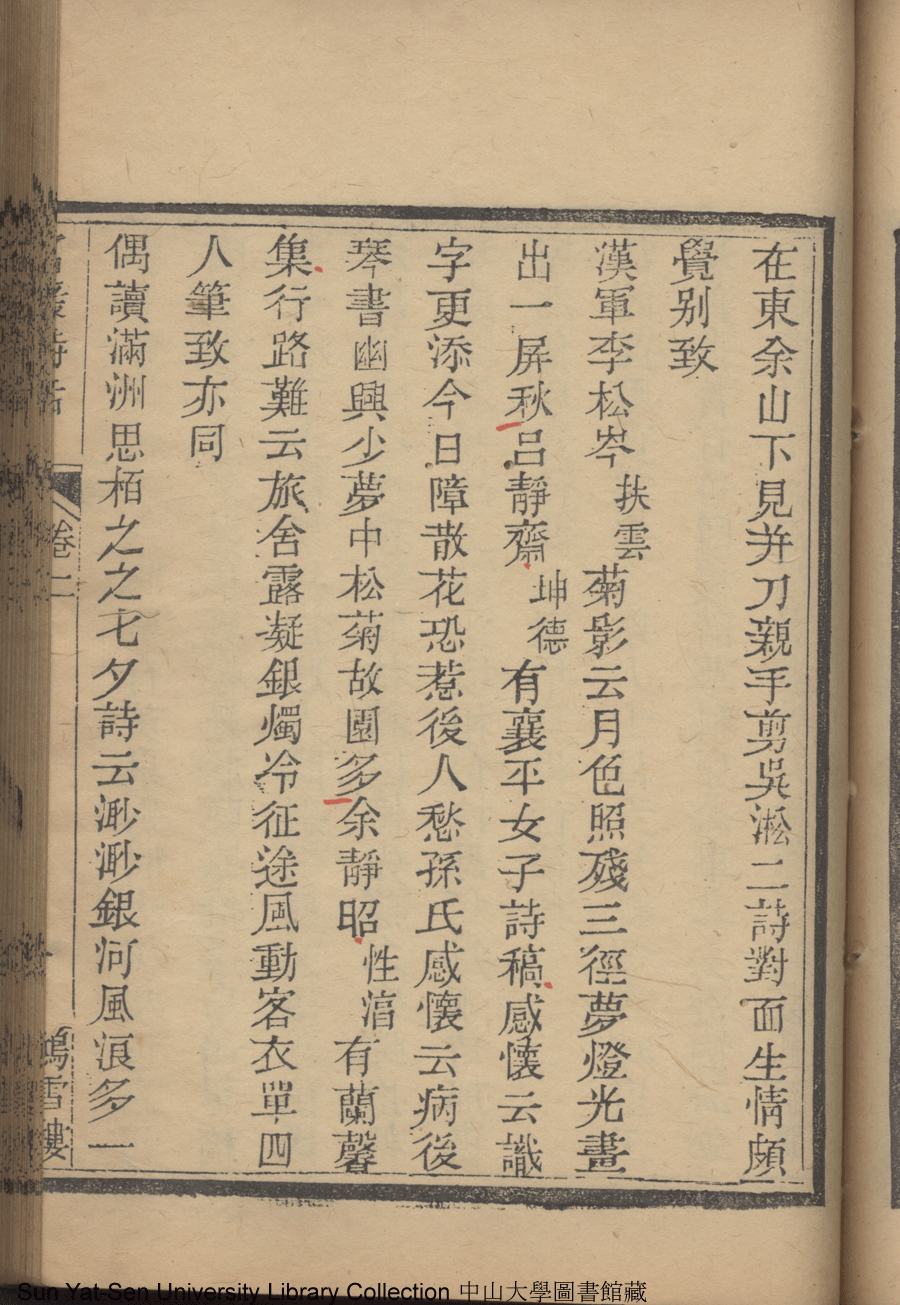 在東余山下見并刀親手剪吳淞二詩對面生情頗
覺别致
漢軍李松岑扶雲菊影云月色照殘三徑夢燈光畫
出一屏秋呂靜齋坤德有襄平女子詩稿感懷云識
字更添今日障散花恐惹後人愁孫氏感懷云病後
琴書幽興少夢中松菊故園多余靜昭性涽有蘭馨
集行路難云旅舍露凝銀燭冷征途風動客衣單四
人筆致亦同
偶讀滿洲思栢之之七夕詩云渺渺銀河風浪多一
詩話
卷二
鴻雪樓
Sun Yat-Sen University Library Collection 中山大學圖書館藏